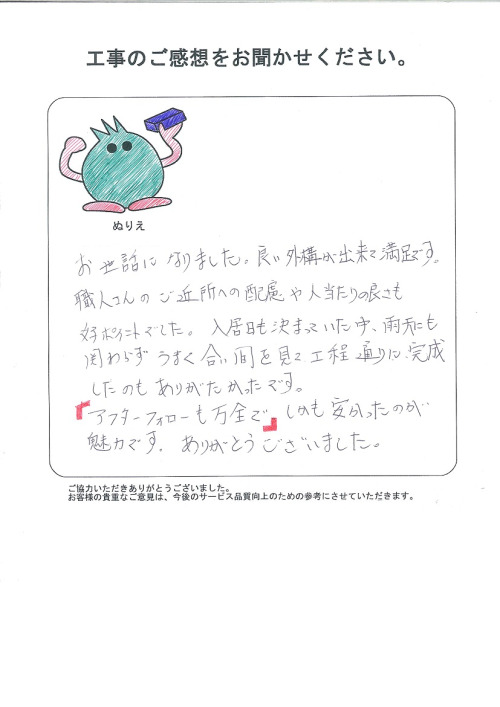 工事のご感想をお聞かせください。
ぬりえ
お世話になりました。良い外構が出来て満足です。
職人さんのご近所への配慮や人当たりの良さも
好ポイントでした。入居日も決まっていた中、雨天にも
関わらずうまく合い間を見て工程通りに完成
したのもありがたかったです。
「アフターフォローも万全で」しかも安かったのが
魅力です。ありがとうございました。
ご協力いただきありがとうございました。
お客様の貴重なご意見は、今後のサービス品質向上のための参考にさせていただきます。